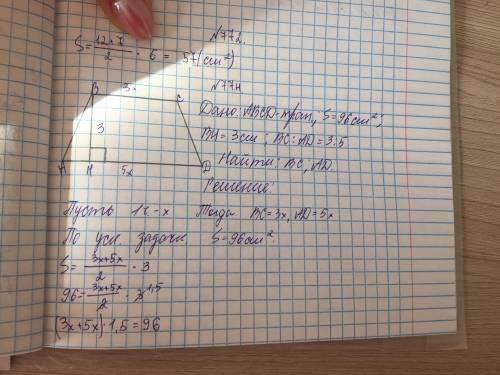 N772.
S = (12+7)/2 · 6 = 57 (см²)
N774
B 3x C
3
A H 5x D
Дано: ABCD-трап, S=96см²;
BH=3см; BC:AD=3:5
Найти: BC, AD.
Решение:
Пусть 1ч.-x Тогда BC=3x, AD=5x
По усл. задачи S=96см².
S= (3x+5x)/2 · 3
96= (3x+5x)/2 · 3 1,5
(3x+5x)·1,5=96